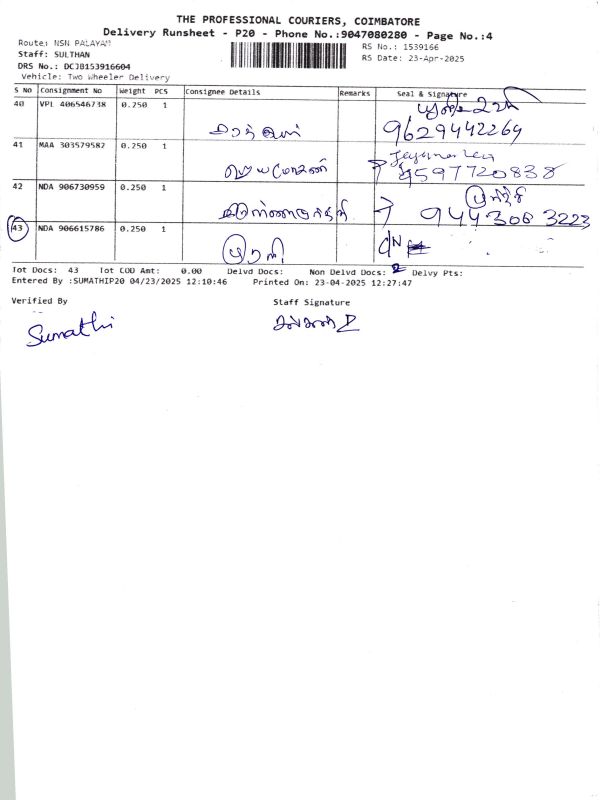 THE PROFESSIONAL COURIERS, COIMBATORE
Delivery Runsheet - P20 - Phone No.:9047080280 - Page No.:4
Route: NSN PALAYAM
RS No.: 1539166
Staff: SULTHAN
RS Date: 23-Apr-2025
DRS No.: DCJB153916604
Vehicle: Two Wheeler Delivery
S No Consignment No Weight PCS Consignee Details Remarks Seal & Signature
40 VPL 406546738 0.250 1
9629442264
41 MAA 303579582 0.250 1
ஜெயமோகன் 8597720838
42 NDA 906730959 0.250 1
9443063223
43 NDA 906615786 0.250 1
Tot Docs: 43 Tot COD Amt: 0.00 Delvd Docs: Non Delvd Docs: 2 Delvy Pts:
Entered By :SUMATHIP20 04/23/2025 12:10:46 Printed On: 23-04-2025 12:27:47
Verified By Staff Signature
Sumathi